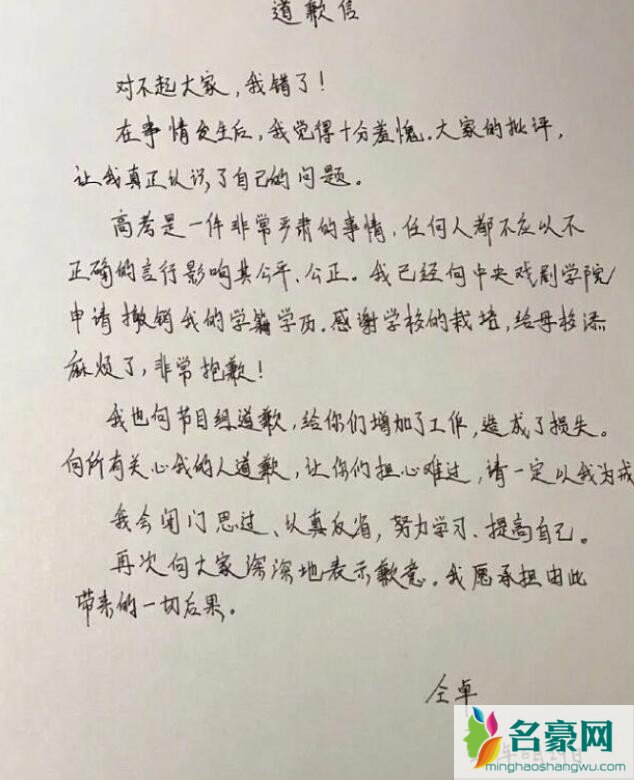 道歉信
对不起大家，我错了！
在事情发生后，我觉得十分羞愧。大家的批评，
让我真正认识了自己的问题。
高考是一件非常严肃的事情，任何人都不应以不
正确的言行影响其公平、公正。我已经向中央戏剧学院
申请撤销我的学籍学历。感谢学校的栽培，给母校添
麻烦了，非常抱歉！
我也向节目组道歉，给你们增加了工作，造成了损失。
向所有关心我的人道歉，让你们担心难过，请一定以我为戒
我会闭门思过、认真反省，努力学习、提高自己。
再次向大家深深地表示歉意。我愿承担由此
带来的一切后果。
仝卓
名豪网
minghaoshangwu.com